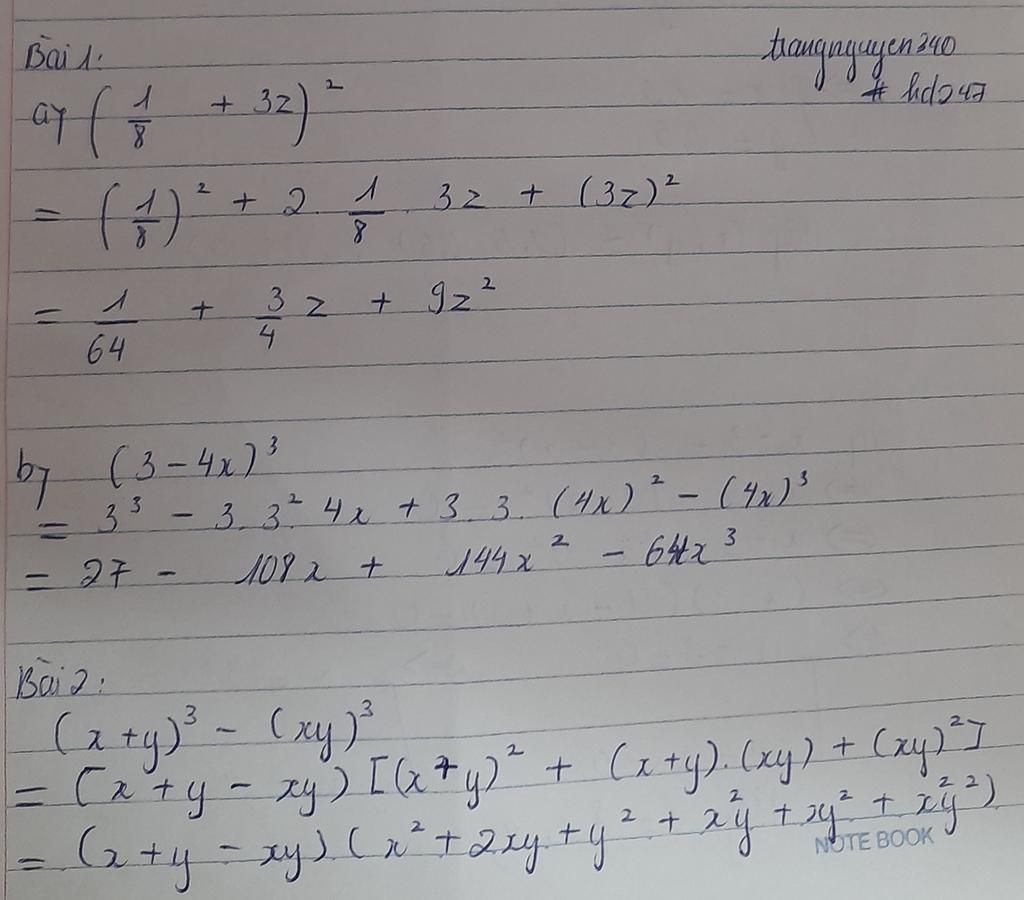 Bài 1:
trangnguyen340
# hd247
a) (1/8 + 3z)²
= (1/8)² + 2. 1/8 . 3z + (3z)²
= 1/64 + 3/4 z + 9z²
b) (3 - 4x)³
= 3³ - 3. 3². 4x + 3. 3. (4x)² - (4x)³
= 27 - 108x + 144x² - 64x³
Bài 2:
(x+y)³ - (xy)³
= (x + y - xy) [(x+y)² + (x+y).(xy) + (xy)²]
= (x + y - xy) (x² + 2xy + y² + x²y + xy² + x²y²)
NOTE BOOK